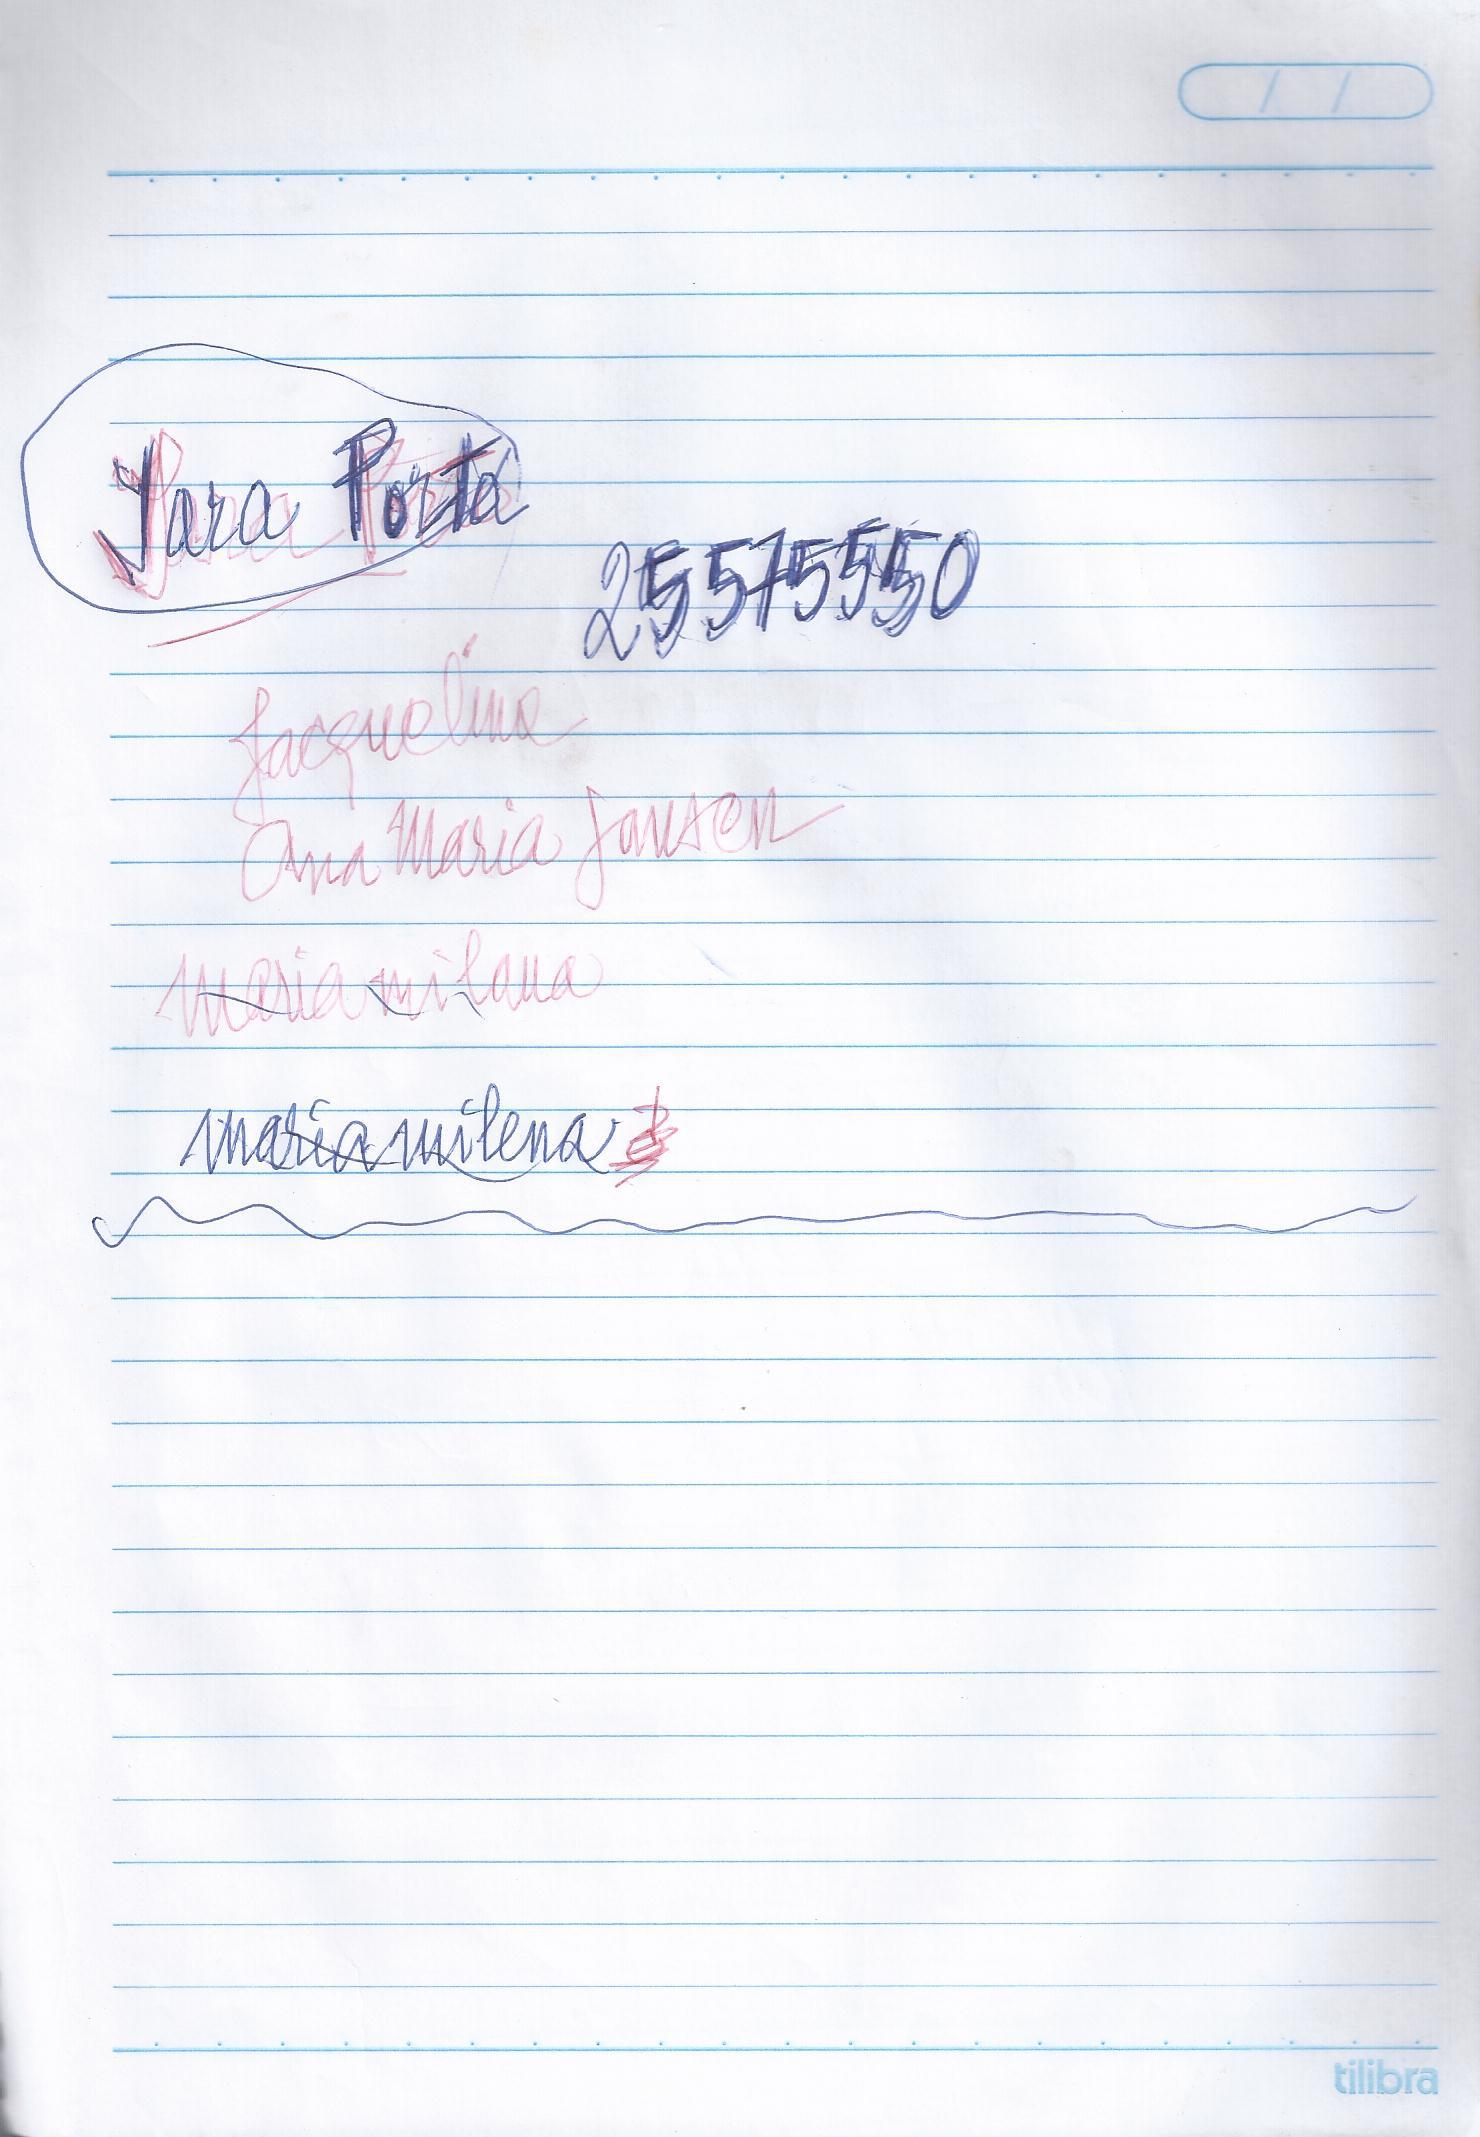 Yara Porta
25575550
Jacqueline
Ana Maria Jansen
maria milana
maria milena
tilibra